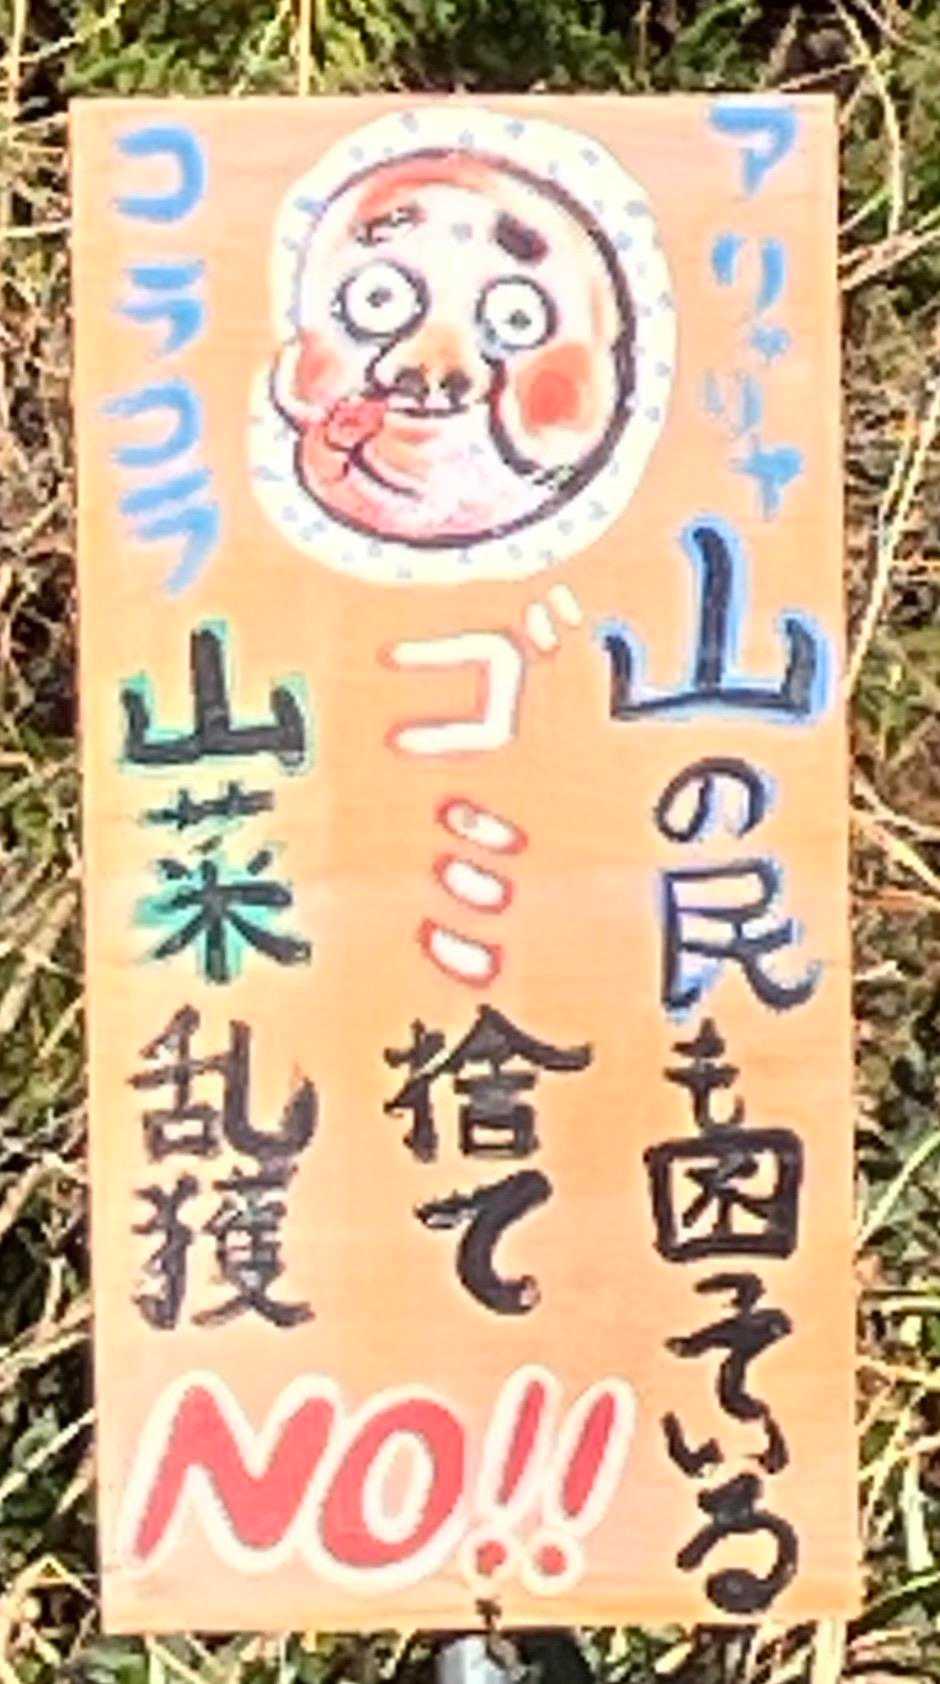 アリャリャ
山の民も困っている
ゴミ捨て
コラコラ
山菜乱獲
NO!!